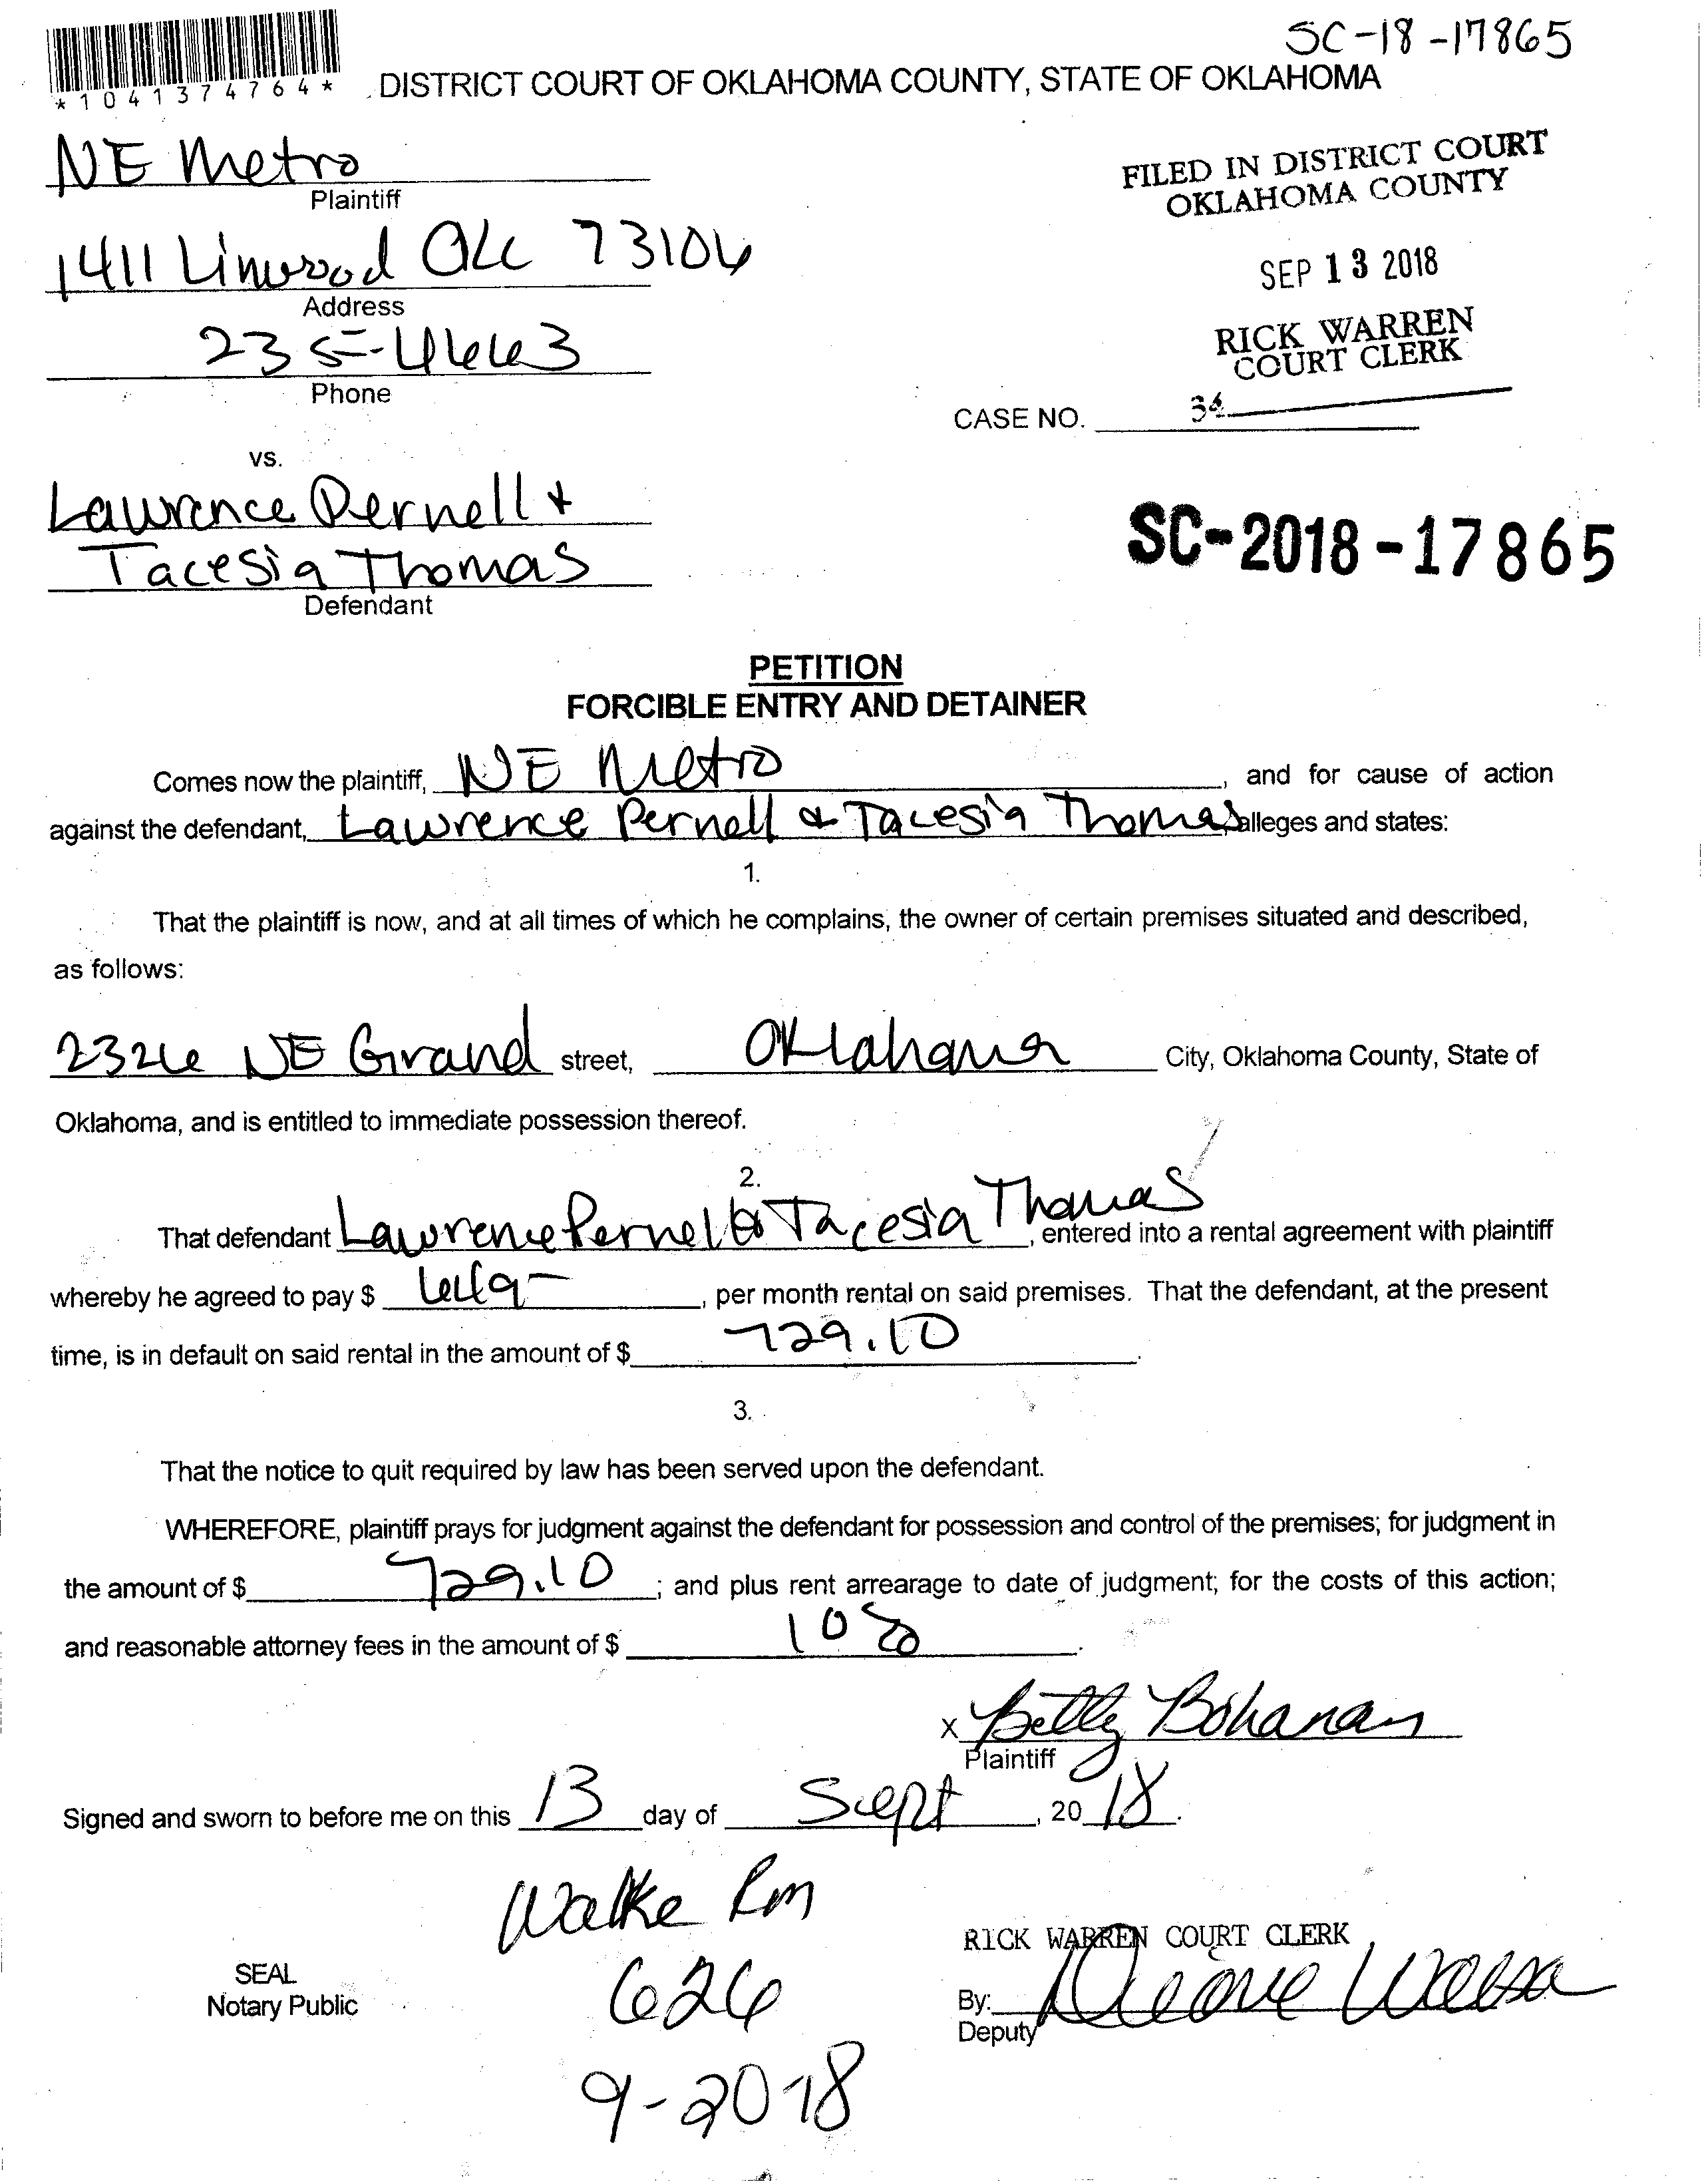 SC-18-17865
*1041374764*
DISTRICT COURT OF OKLAHOMA COUNTY, STATE OF OKLAHOMA
NE Metro
Plaintiff
FILED IN DISTRICT COURT
OKLAHOMA COUNTY
1411 Linwood OKC 73106
Address
SEP 13 2018
235-4663
Phone
RICK WARREN
COURT CLERK
CASE NO. 34
vs.
Lawrence Pernell &
Tacesia Thomas
Defendant
SC-2018-17865
PETITION
FORCIBLE ENTRY AND DETAINER
Comes now the plaintiff, NE Metro, and for cause of action
against the defendant, Lawrence Pernell & Tacesia Thomas, alleges and states:
1.
That the plaintiff is now, and at all times of which he complains, the owner of certain premises situated and described,
as follows:
2326 NE Grand street, Oklahoma City, Oklahoma County, State of
Oklahoma, and is entitled to immediate possession thereof.
2.
That defendant Lawrence Pernell & Tacesia Thomas, entered into a rental agreement with plaintiff
whereby he agreed to pay $ 649-, per month rental on said premises. That the defendant, at the present
time, is in default on said rental in the amount of $ 729.10.
3.
That the notice to quit required by law has been served upon the defendant.
WHEREFORE, plaintiff prays for judgment against the defendant for possession and control of the premises; for judgment in
the amount of $ 729.10; and plus rent arrearage to date of judgment; for the costs of this action;
and reasonable attorney fees in the amount of $.
x Betty Bohanan
Plaintiff
Signed and sworn to before me on this 13 day of Sept, 2018.
Walke Rm
626
9-2018
SEAL
Notary Public
RICK WARREN COURT CLERK
By:
Deputy